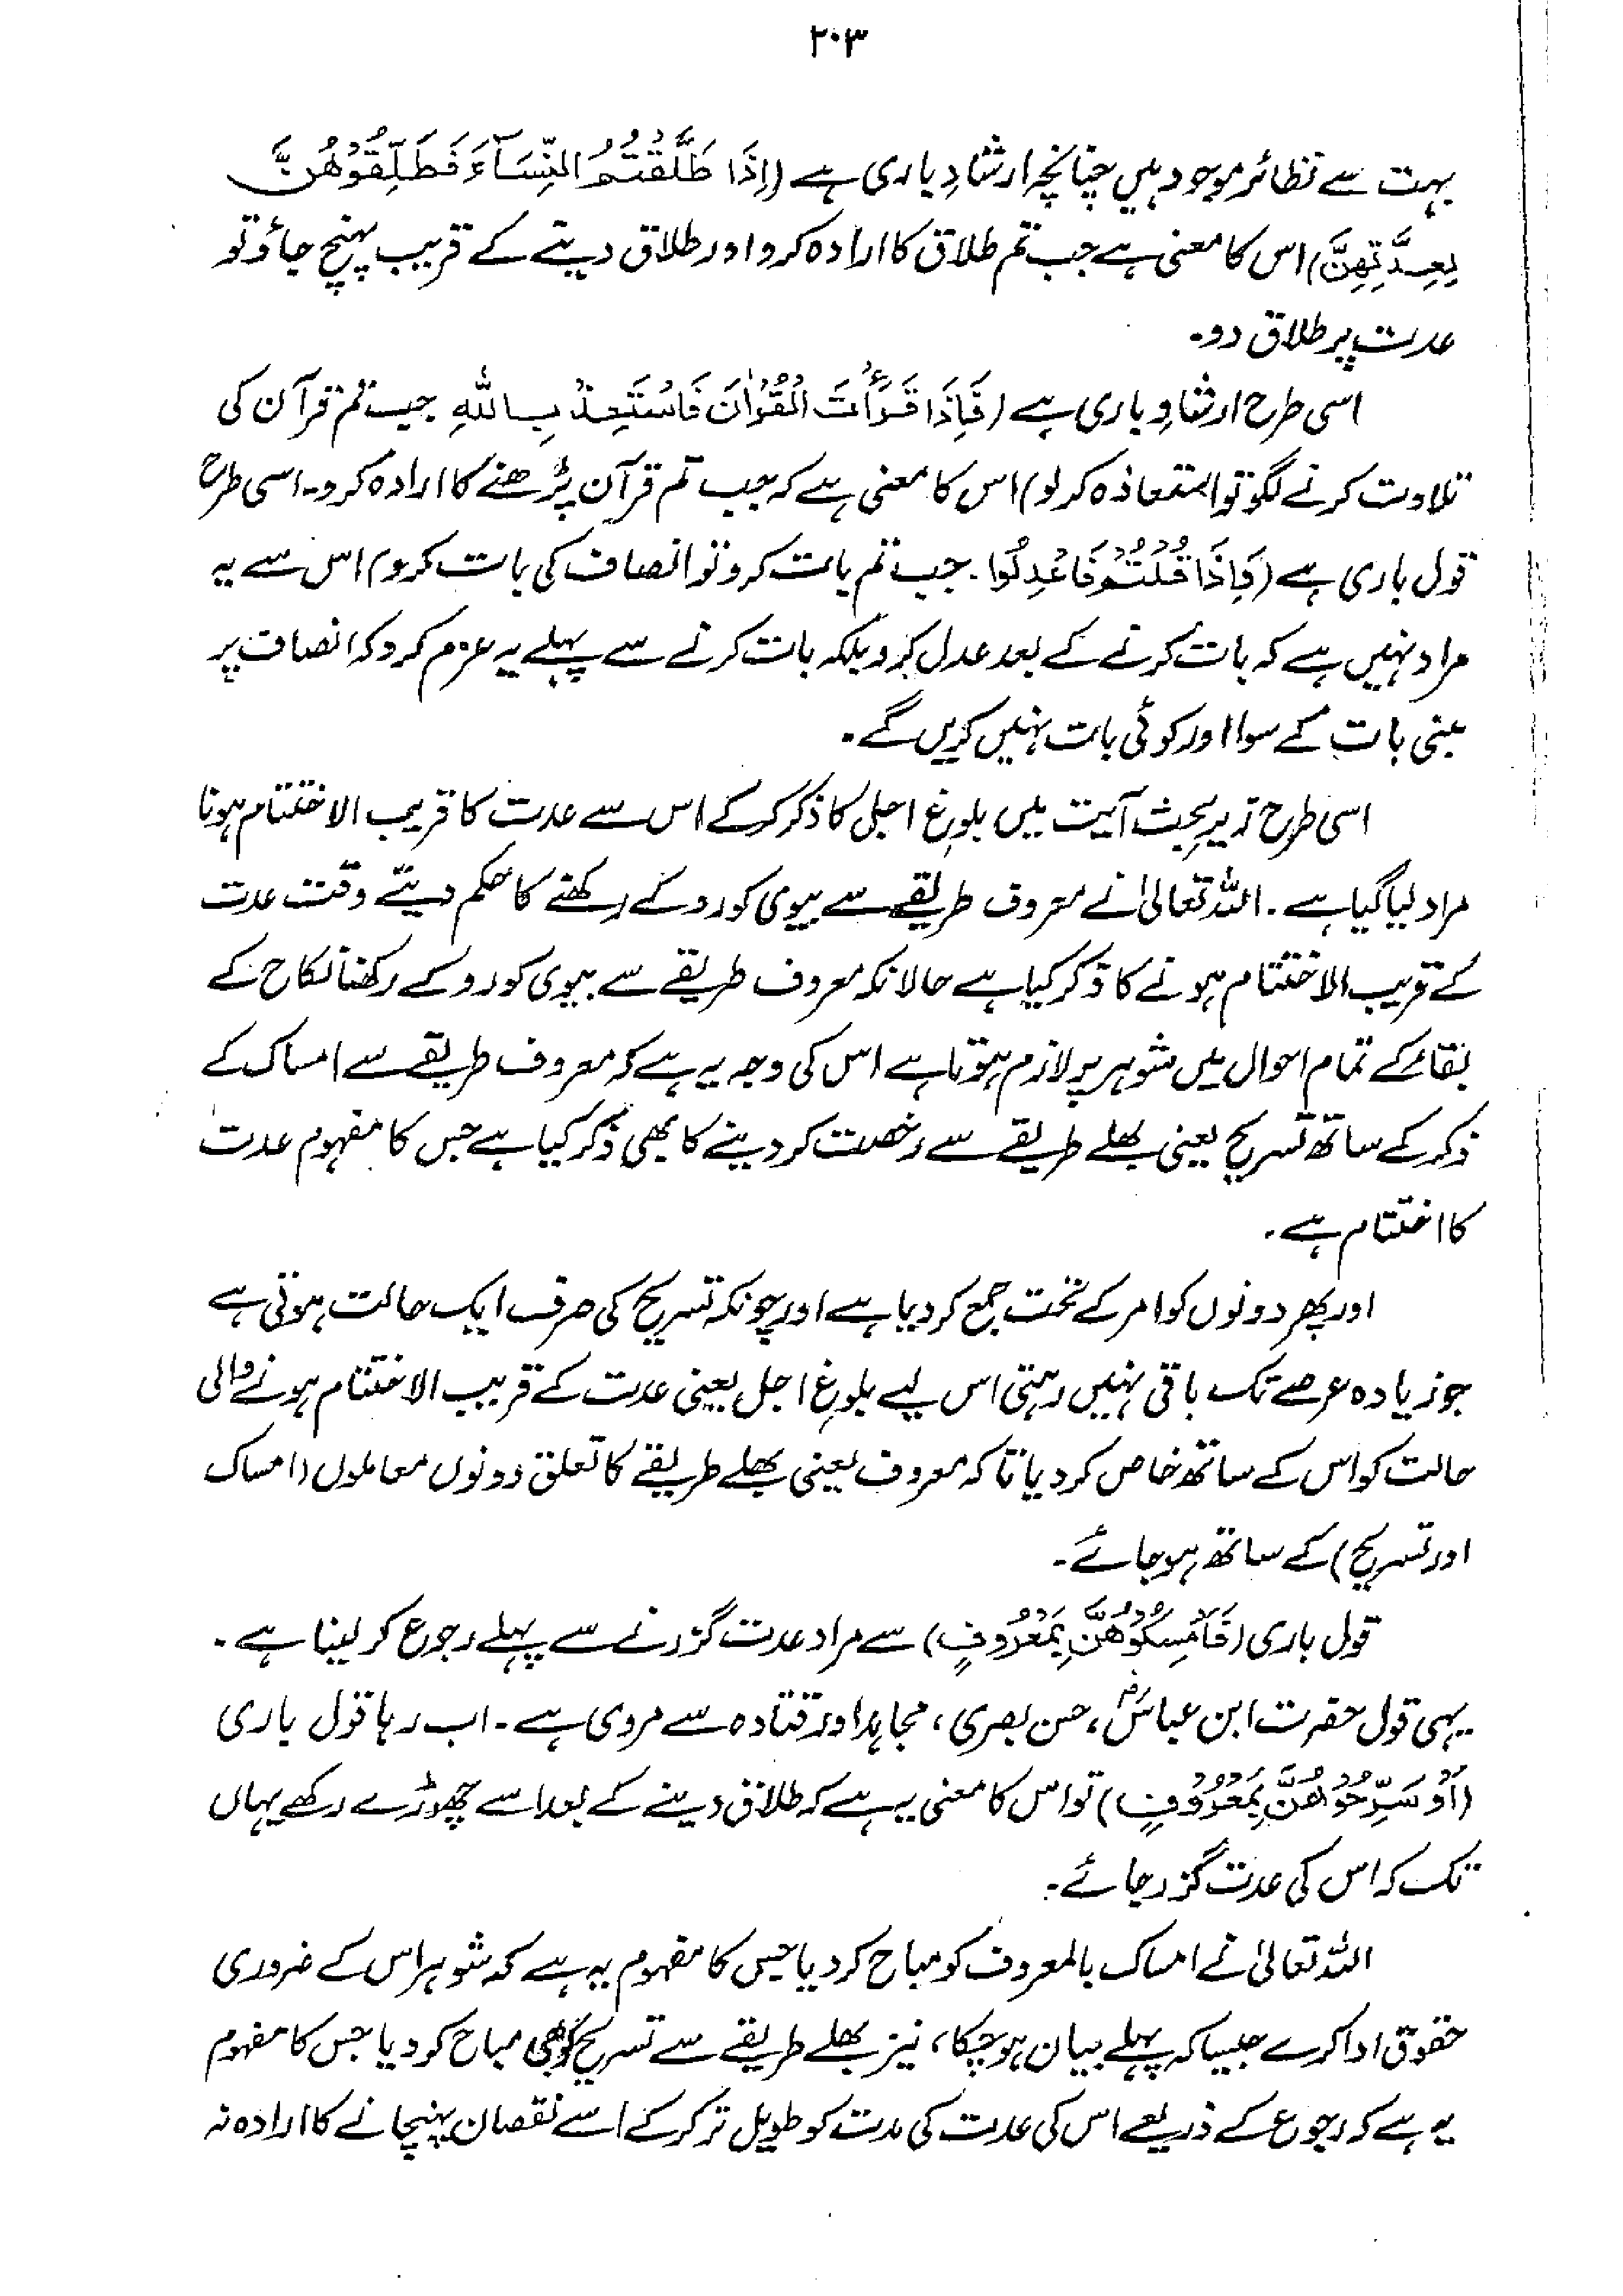 ۲۰۳
بہت سے نظائر موجود ہیں چنانچہ ارشادِ باری ہے (اِذَا طَلَّقْتُمُ النِّسَآءَ فَطَلِّقُوْهُنَّ
لِعِدَّتِهِنَّ) اس کا معنی ہے جب تم طلاق کا ارادہ کرو اور طلاق دینے کے قریب پہنچ جاؤ تو
عدت پر طلاق دو۔
اسی طرح ارشادِ باری ہے (فَاِذَا قَرَأْتَ الْقُرْاٰنَ فَاسْتَعِذْ بِاللّٰهِ جب تم قرآن کی
تلاوت کرنے لگو تو استعاذہ کر لو) اس کا معنی ہے کہ جب تم قرآن پڑھنے کا ارادہ کرو۔ اسی طرح
قول باری ہے (فَاِذَا قُلْتُمْ فَاعْدِلُوْا۔ جب تم بات کرو تو انصاف کی بات کرو) اس سے یہ
مراد نہیں ہے کہ بات کرنے کے بعد عدل کرو بلکہ بات کرنے سے پہلے یہ عزم کرو کہ انصاف پر
مبنی بات کے سوا اور کوئی بات نہیں کریں گے۔
اسی طرح زیرِ بحث آیت میں بلوغِ اجل کا ذکر کرکے اس سے عدت کا قریب الاختتام ہونا
مراد لیا گیا ہے۔ اللہ تعالیٰ نے معروف طریقے سے بیوی کو روکے رکھنے کا حکم دیتے وقت عدت
کے قریب الاختتام ہونے کا ذکر کیا ہے حالانکہ معروف طریقے سے بیوی کو روکے رکھنا نکاح کے
بقاء کے تمام احوال میں شوہر پر لازم ہوتا ہے اس کی وجہ یہ ہے کہ معروف طریقے سے امساک کے
ذکر کے ساتھ تسریح یعنی بھلے طریقے سے رخصت کر دینے کا بھی ذکر کیا ہے جس کا مفہوم عدت
کا اختتام ہے۔
اور پھر دونوں کو امر کے تحت جمع کر دیا ہے اور چونکہ تسریح کی صرف ایک حالت ہوتی ہے
جو زیادہ عرصے تک باقی نہیں رہتی اس لیے بلوغِ اجل یعنی عدت کے قریب الاختتام ہونے والی
حالت کو اس کے ساتھ خاص کر دیا تاکہ معروف یعنی بھلے طریقے کا تعلق دونوں معاملوں (امساک
اور تسریح) کے ساتھ ہو جائے۔
قول باری (فَاَمْسِكُوْهُنَّ بِمَعْرُوْفٍ) سے مراد عدت گزرنے سے پہلے رجوع کر لینا ہے۔
یہی قول حضرت ابن عباسؓ، حسن بصری، مجاہد اور قتادہ سے مروی ہے۔ اب رہا قول باری
(اَوْ سَرِّحُوْهُنَّ بِمَعْرُوْفٍ) تو اس کا معنی یہ ہے کہ طلاق دینے کے بعد اسے چھوڑے رکھے یہاں
تک کہ اس کی عدت گزر جائے۔
اللہ تعالیٰ نے امساک بالمعروف کو مباح کر دیا جس کا مفہوم یہ ہے کہ شوہر اس کے ضروری
حقوق ادا کرے جیسا کہ پہلے بیان ہو چکا، نیز بھلے طریقے سے تسریح کو بھی مباح کر دیا جس کا مفہوم
یہ ہے کہ رجوع کے ذریعے اس کی عدت کی مدت کو طویل تر کرکے اسے نقصان پہنچانے کا ارادہ نہ